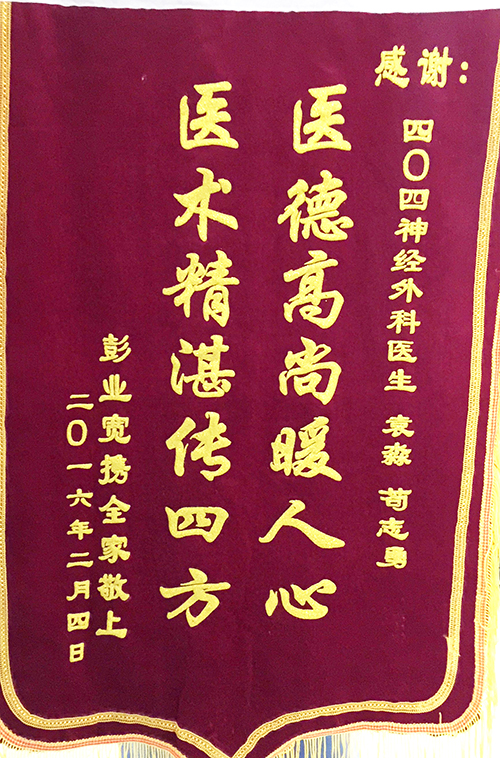 感谢：
四〇四神经外科医生 袁淼 苟志勇
医德高尚暖人心
医术精湛传四方
彭业宽携全家敬上
二〇一六年二月四日